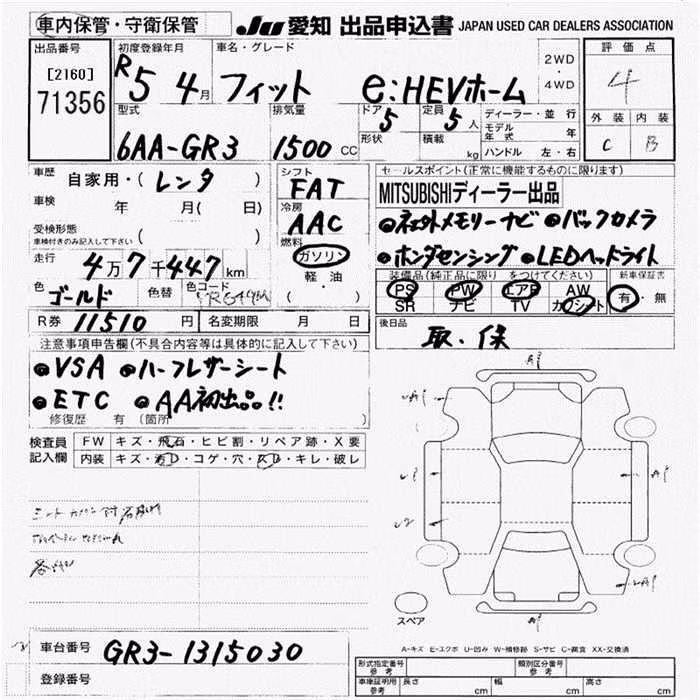 車内保管・守衛保管
JU 愛知 出品申込書 JAPAN USED CAR DEALERS ASSOCIATION
出品番号
[2160]
71356
初度登録年月
R5 4月
車名・グレード
フィット e:HEVホーム
2WD
・
4WD
評価点
4
外装 内装
C B
型式
6AA-GR3
排気量
1500 CC
ドア 5
形状
定員 5人
積載 kg
ディーラー・並行
モデル年式 年
ハンドル 左・右
車歴 自家用・(レンタ )
車検 年 月(日 )
受検形態
車検付きのみ記入して下さい ( )
走行 4万7千447km
色 ゴールド 色替 色コード
シフト
FAT
冷房
AAC
燃料
ガソリン
軽油
( ・ )
R券 11510円 名変期限 月 日
セールスポイント(正常に機能するものに限ります)
MITSUBISHIディーラー出品
●社外メモリーナビ ●バックカメラ
●ホンダセンシング ●LEDヘッドライト
装備品(純正品に限り をつけてください) 新車保証書
PS PW エアB AW 有・無
SR ナビ TV カワシート
後日品
取・保
注意事項申告欄(不具合内容等は具体的に記入して下さい)
●VSA ●ハーフレザーシート
●ETC ●AA初出品!!
修復歴 有(箇所
検査員 FW キズ・飛石・ヒビ割・リペア跡・X要
記入欄 内装 キズ・汚レ・コゲ・穴・スレ・キレ・破レ
スペア
A-キズ E-エクボ U-凹み W-補修跡 S-サビ C-腐食 XX-交換済
車台番号 GR3-1315030
登録番号
形式指定番号 参考 類別区分番号 参考
車庫証明用 参考 長さ cm 幅 cm 高さ cm